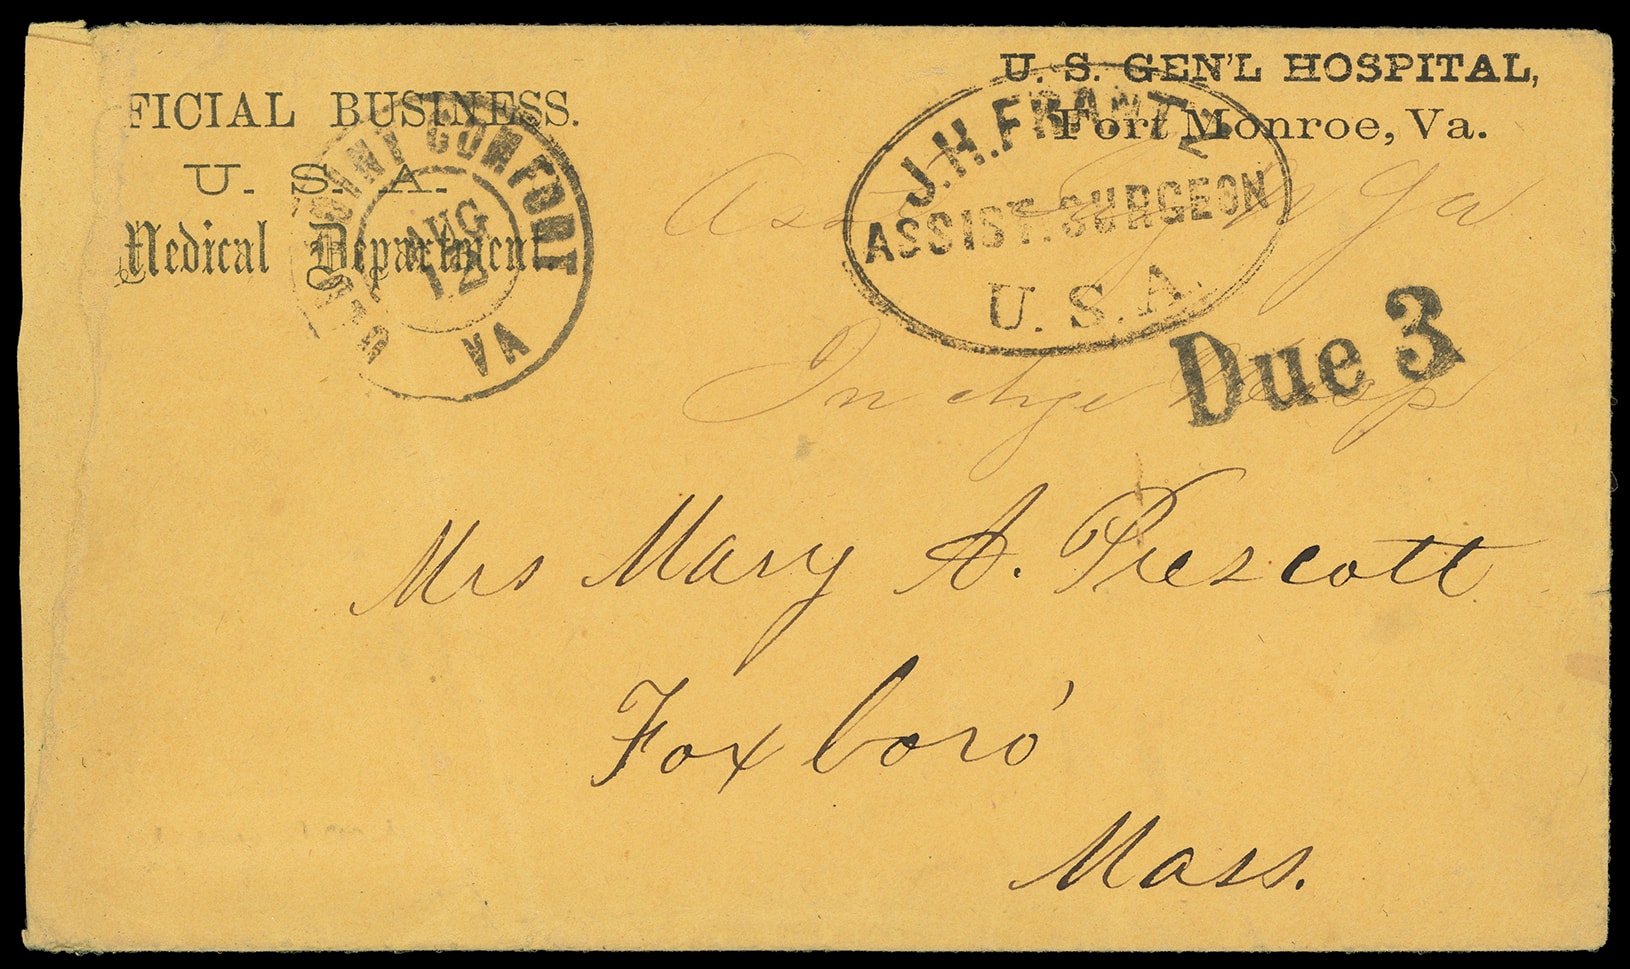 FICIAL BUSINESS.
U. S. A.
Medical Department
OLD POINT COMFORT
AUG
12
VA
U. S. GEN'L HOSPITAL,
Fort Monroe, Va.
J.H. FRANTZ
ASSIST. SURGEON
U. S. A.
Asst
In chge Hosp
Due 3
Mrs Mary A. Prescott
Foxboro'
Mass.